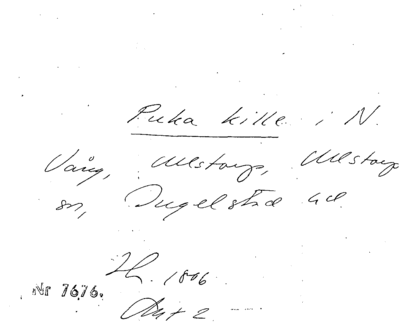 Puka kille i N.
Vång, Ullstorp, Ullstorp
sn, Ingelstad hd
1806
Nr 7676.